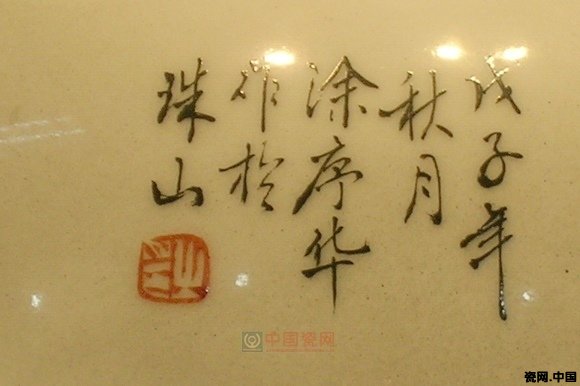 戊子年
秋月
涂序华
作於
珠山
中国瓷网
瓷网.中国